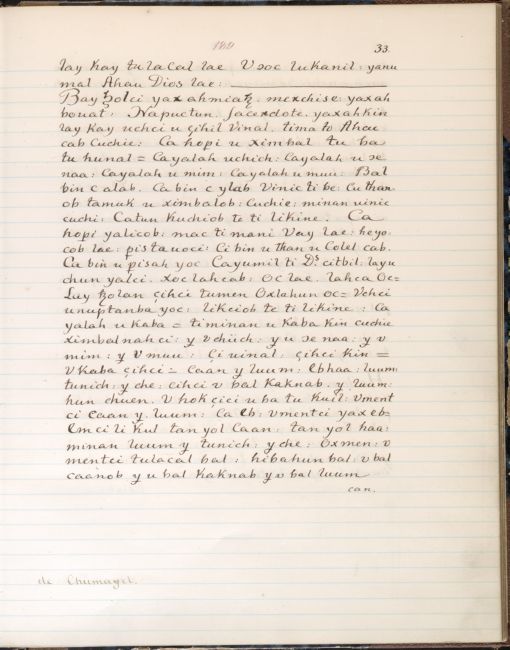 33.
lay kay tulacal lae. V xoc lukanil: yanu
mal Ahau Dios lae:
Bay ꜩolci yax ahmiatz. merchise yaxah
bouat: Napuctun. Sacerdote. yaxahkin
lay kay uchci u çihil Vinal. timato Ahau
cab Cuchie: Ca hopi u ximbal tu ba
tu hunal = Cayalah uchich: Cayalah u xe
naa: Cayalah u mim: Cayalah u muu: Bal
bin c alab. Ca bin c ylab Vinic ti be: Cu than
ob tamuk u ximbalob: Cuchie: minan uinic
cuchi: Catun Kuchiob te ti likine. Ca
hopi yalicob: mac ti mani Vay lae: heyo
cob lae: pistauoci: Ci bin u than u Colel cab.
Ca bin u pisah yoc Cayumil ti Ds. citbil: layu
chun yalci. xoc lahcab: Oc lae. lahca Oc=
Lay ꜩolan çihci tumen Oxlahun oc= Vchci
u nuptanba yoc: likciob te ti likine: Ca
yalah u kaba = ti minan u kaba kin cuchie
ximbalnahci: y Vchiich: y u xe naa: y v
mim: y V muu: Çi uinal: çihci kin =
V kaba çihci = Caan y luum: Ebhaa: luum:
tunich: y che: cihci v bal Kaknab. y luum:
hun chuen. V hokçici u ba tu kuil: Vment
ci Caan y. luum: Ca Eb: vmentci yax eb=
Emci li kul tan yol Caan: tan yol haa:
minan luum y tunich: y che: Ox men: v
mentci tulacal bal: hibahun bal: v bal
caanob y u bal kaknab y v bal luum
can.
de Chumayel.